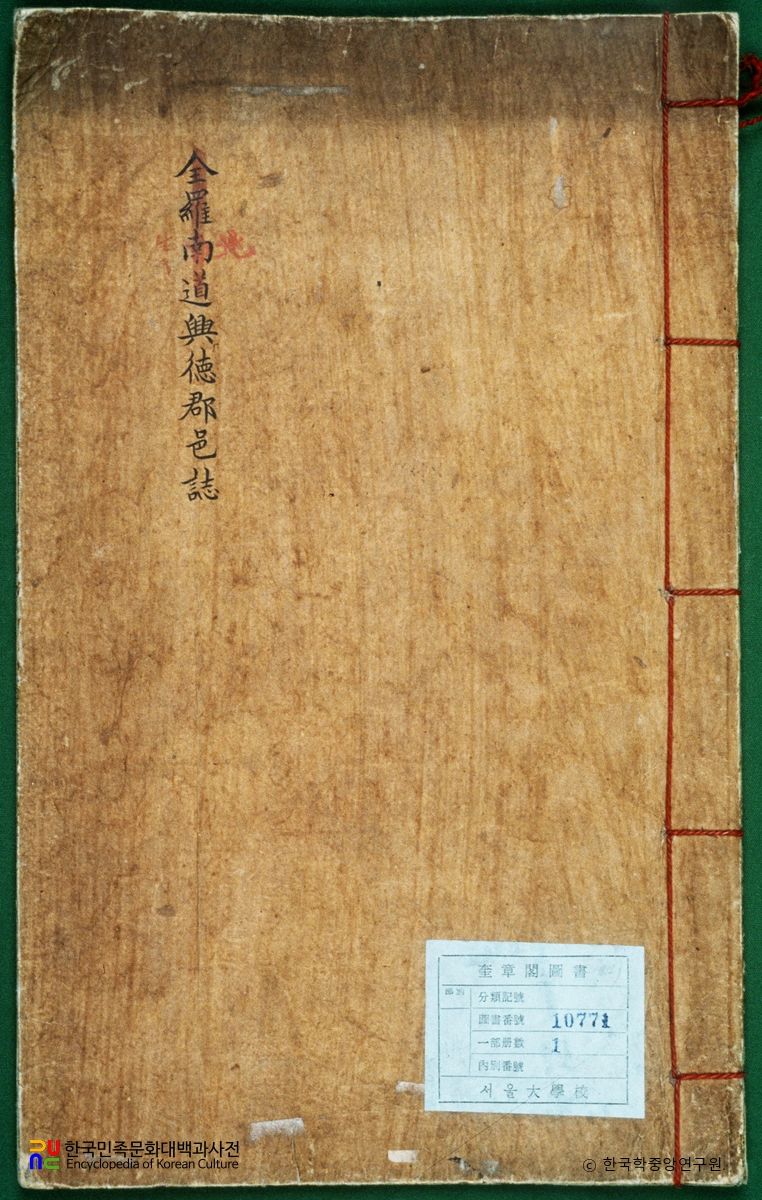 全羅南道興徳郡邑誌
北
奎章閣圖書
部別
分類記號
圖書番號 10771
一部册數 1
內別番號
서울大學校
한국민족문화대백과사전
Encyclopedia of Korean Culture
© 한국학중앙연구원